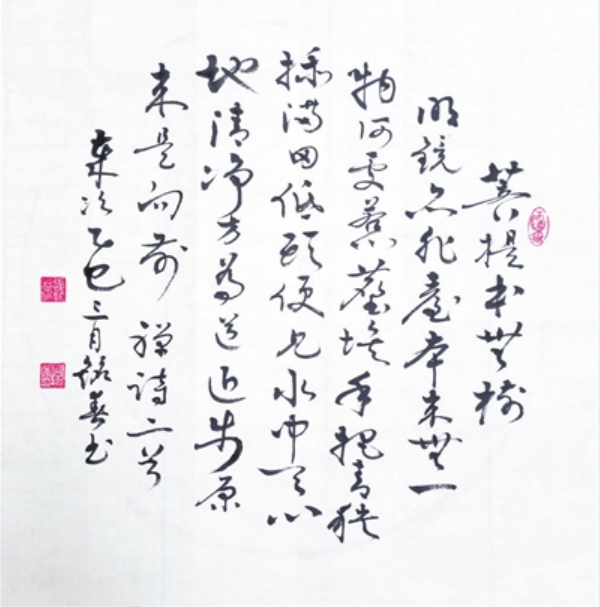 菩提本無樹
明鏡亦非臺本来無一
物何處惹塵埃手把青秧
插滿田低頭便見水中天心
地清净方為道退步原
来是向前 禅詩二首
歲次乙巳三月銘春书